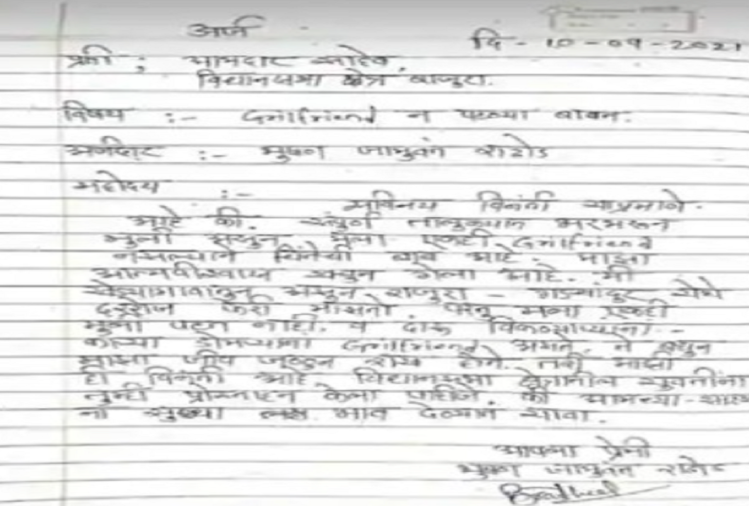 अर्ज
दि - 10-09-2021
प्रती : आमदार साहेब,
विधानसभा क्षेत्र राजुरा.
विषय :- Grilfriend न पटल्या बाबत.
अर्जदार :- भुषण जामुवंत राठोड
महोदय :-
सविनय विनंती याप्रमाणे
आहे की. संपुर्ण तालुक्यात भरभरून
मुली असुन मला एकही Grilfriend
नसल्याने चिंतेची बाब आहे. माझा
आत्मविश्वास खचुन गेला आहे. मी
खेड्यागावातुन असुन राजुरा - गडचांदुर येथे
दररोज फेरी मारतो. परंतु मला एकही
मुली पटत नाही. व दारू विकणाऱ्याला --
काऱ्या डोमऱ्याला Grilfriend असते. ते बघुन
माझा जीव जळुन राख होते. तरी माझी
ही विनंती आहे विधानसभा क्षेत्रातील युवतींना
तुम्ही प्रोत्साहन केला पाहिजे. की आमच्या - सारख्या
ना सुध्दा भाव देण्यात यावा.
आपला प्रेमी
भुषण जामुवंत राठोड